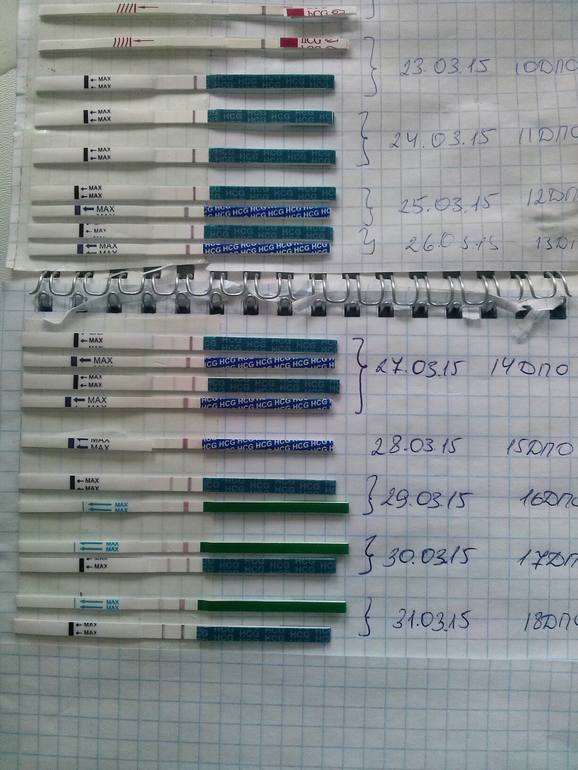 HCG
HCG
MAX
23.03.15 10ДПО
MAX HCG HCG HCG
24.03.15 11ДПО
MAX HCG HCG
MAX HCG HCG
25.03.15 12ДП
MAX HCG HCG HCG HCG HCG HCG
MAX HCG HCG
26.03.15 13ДП
MAX HCG HCG HCG HCG HCG HCG
MAX HCG HCG
MAX HCG HCG HCG HCG HCG HCG
27.03.15 14ДПО
MAX HCG HCG
MAX HCG HCG HCG HCG HCG HCG
MAX HCG HCG HCG HCG HCG HCG
28.03.15 15ДПО
MAX HCG HCG
29.03.15 16ДПО
MAX
MAX
MAX
MAX
30.03.15 17ДП
MAX HCG HCG HCG
MAX
MAX
31.03.15 18ДПО
MAX
MAX HCG HCG